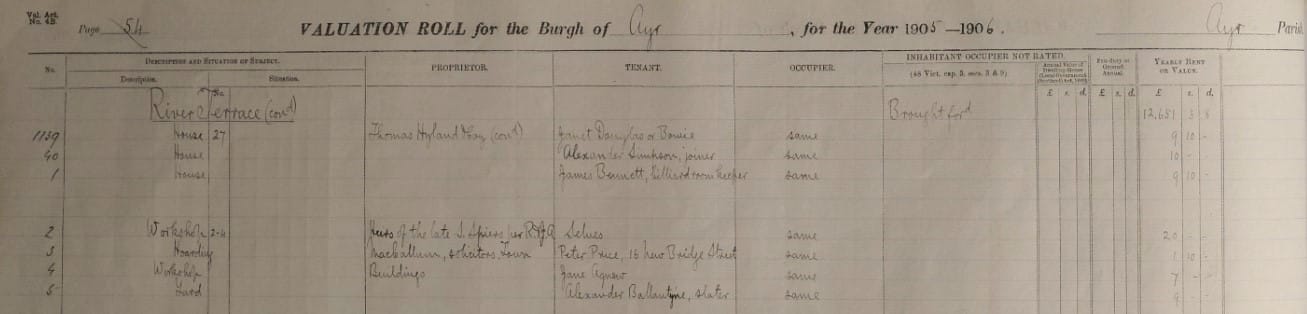 Val. Act.
No. 4B.
Page 54 VALUATION ROLL for the Burgh of Ayr, for the Year 1905—1906. Ayr Parish
No. DESCRIPTION AND SITUATION OF SUBJECT. PROPRIETOR. TENANT. OCCUPIER. INHABITANT OCCUPIER NOT RATED. YEARLY RENT
OR VALUE.
Description. Situation. (48 Vict. cap. 3, secs. 3 & 9) Annual Value of
Dwelling-House
Feu-duty or
Ground
Annual.
£ s. d. £ s. d. £ s. d.
River Terrace (contd) Brought ford 12,651 3 8
1139 House 27 Thomas Hyland May (contd) Janet Douglas or Bowie same 9 10 -
40 House Alexander Simpson, joiner same 10 - -
1 House James Bennett, billiard room keeper same 9 10 -
2 Workshop 2-4 Heirs of the late J. Spiers per R. & J. A. Selves same 20 - -
3 Hoarding MacCallum, solicitors, Town Peter Price, 15 New Bridge Street same 1 10 -
4 Workshop Buildings Jane Agnew same 7 - -
5 Yard Alexander Ballantyne, slater same 9 - -